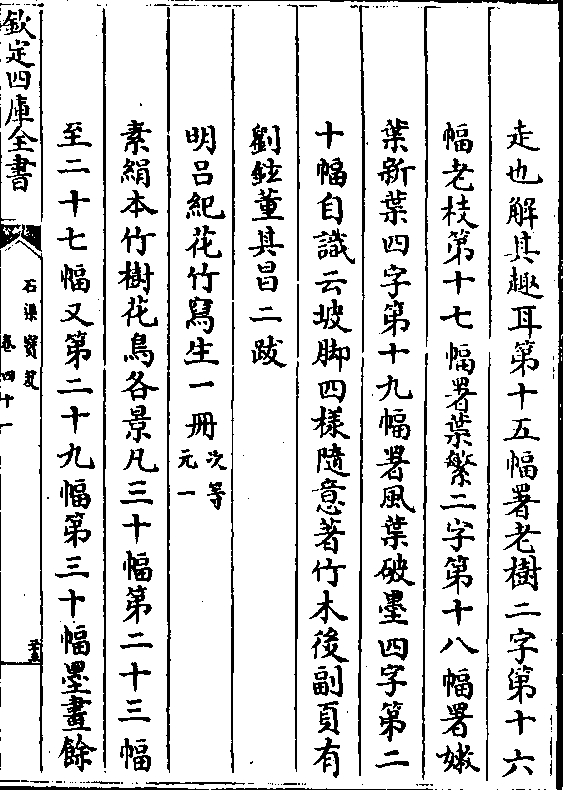 走也解其趣耳第十五幅署老樹二字第十六
幅老枝第十七幅署葉繁二字第十八幅署嫩
葉新葉四字第十九幅署風葉破墨四字第二
十幅自識云坡脚四樣隨意著竹木後副頁有
劉鉉董其昌二跋
明呂紀花竹寫生一冊次等元一
素絹本竹樹花鳥各景凡三十幅第二十三幅
至二十七幅又第二十九幅第三十幅墨畫餘
欽定四庫全書
石渠寳笈
卷四十一